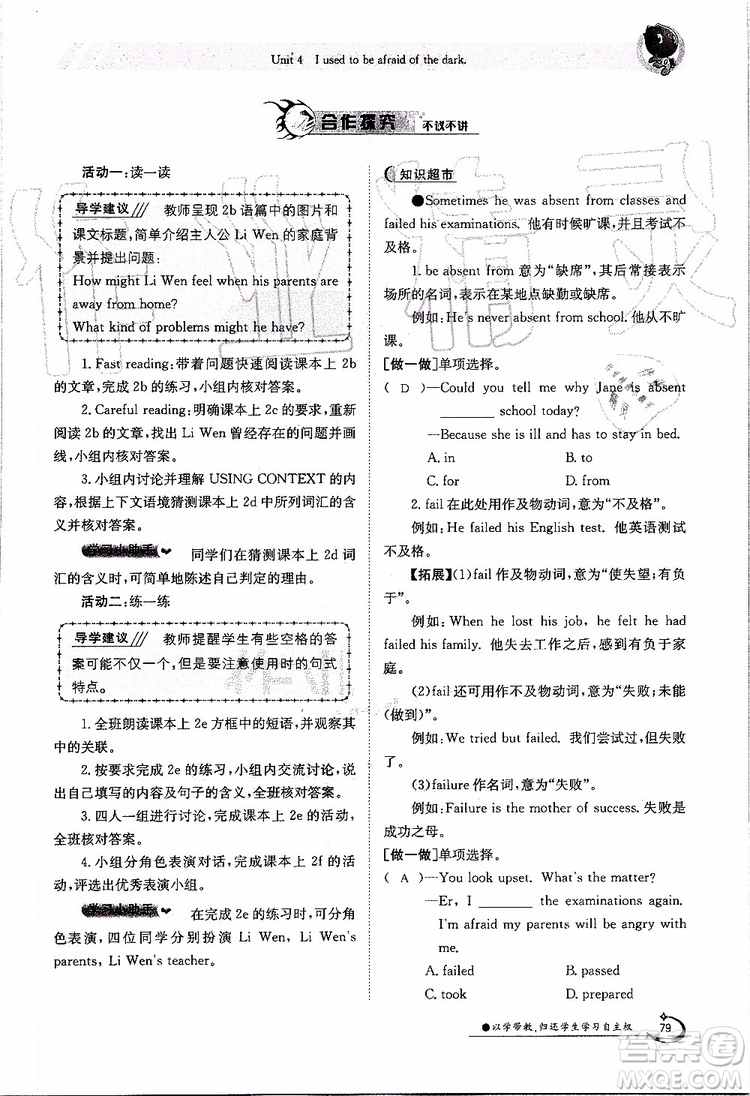 Unit 4　I used to be afraid of the dark.
合作探究 不议不讲
活动一:读一读
导学建议 教师呈现 2b 语篇中的图片和
课文标题,简单介绍主人公 Li Wen 的家庭背
景并提出问题:
How might Li Wen feel when his parents are
away from home?
What kind of problems might he have?
1. Fast reading:带着问题快速阅读课本上 2b
的文章,完成 2b 的练习,小组内核对答案。
2. Careful reading:明确课本上 2c 的要求,重新
阅读 2b 的文章,找出 Li Wen 曾经存在的问题并画
线,小组内核对答案。
3. 小组内讨论并理解 USING CONTEXT 的内
容,根据上下文语境猜测课本上 2d 中所列词汇的含
义并核对答案。
学习小助手 同学们在猜测课本上 2d 词
汇的含义时,可简单地陈述自己判定的理由。
活动二:练一练
导学建议 教师提醒学生有些空格的答
案可能不仅一个,但是要注意使用时的句式
特点。
1. 全班朗读课本上 2e 方框中的短语,并观察其
中的关联。
2. 按要求完成 2e 的练习,小组内交流讨论,形成
自己填写的内容及句子的含义,全班核对答案。
3. 四人一组进行讨论,完成课本上 2e 的活动,
全班核对答案。
4. 小组分角色表演对话,完成课本上 2f 的活
动,评选出优秀表演小组。
学习小助手 在完成 2e 的练习时,可分角
色表演,四位同学分别扮演 Li Wen, Li Wen's
parents, Li Wen's teacher。
知识超市
●Sometimes he was absent from classes and
failed his examinations. 他有时候旷课,考试不
及格。
1. be absent from 意为“缺席”,其后常接表示
场所的名词,表示在某地点缺勤或缺席。
例如:He's never absent from school. 他从不旷
课。
[做一做]单项选择。
( D )—Could you tell me why Jane is absent
________ school today?
—Because she is ill and has to stay in bed.
A. in B. to
C. for D. from
2. fail 在此处用作及物动词,意为“不及格”。
例如:He failed his English test. 他英语测试
不及格。
【拓展】(1)fail 作及物动词,意为“使失望;有负
于”。
例如:When he lost his job, he felt he had
failed his family. 他失去工作之后,感到有负于家
庭。
(2)fail 还可用作不及物动词,意为“失败;未能
(做到)”。
例如:We tried but failed. 我们尝试过,但失
败了。
(3)failure 作名词,意为“失败”。
例如:Failure is the mother of success. 失败是
成功之母。
[做一做]单项选择。
( A )—You look upset. What's the matter?
—Er, I ________ the examinations again.
I'm afraid my parents will be angry with
me.
A. failed B. passed
C. took D. prepared
●以学带教,归还学生学习自主权
79
答案圈
MXQE.COM